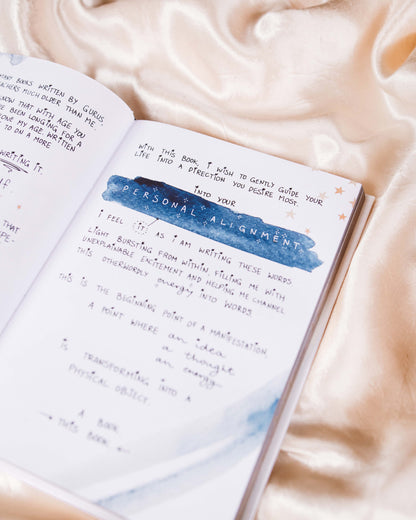 MANY BOOKS WRITTEN BY GURUS
TEACHERS MUCH OLDER THAN ME.
KNOW THAT WITH AGE YOU
BEEN LONGING FOR A
MY AGE. WRITTEN
TO ON A MORE
WRITING IT.
THAT
WITH THIS BOOK, I WISH TO GENTLY GUIDE YOUR
LIFE INTO A DIRECTION YOU DESIRE MOST.
INTO YOUR
PERSONAL ALIGNMENT
I FEEL IT, AS I AM WRITING THESE WORDS.
LIGHT BURSTING FROM WITHIN, FILLING ME WITH
UNEXPLAINABLE EXCITEMENT AND HELPING ME CHANNEL
THIS OTHERWORDLY energy INTO WORDS
THIS IS THE BEGINNING POINT OF A MANIFESTATION.
A POINT WHERE an idea
a thought
an energy
IS TRANSFORMING INTO A
PHYSICAL OBJECT.
A BOOK.
THIS BOOK.